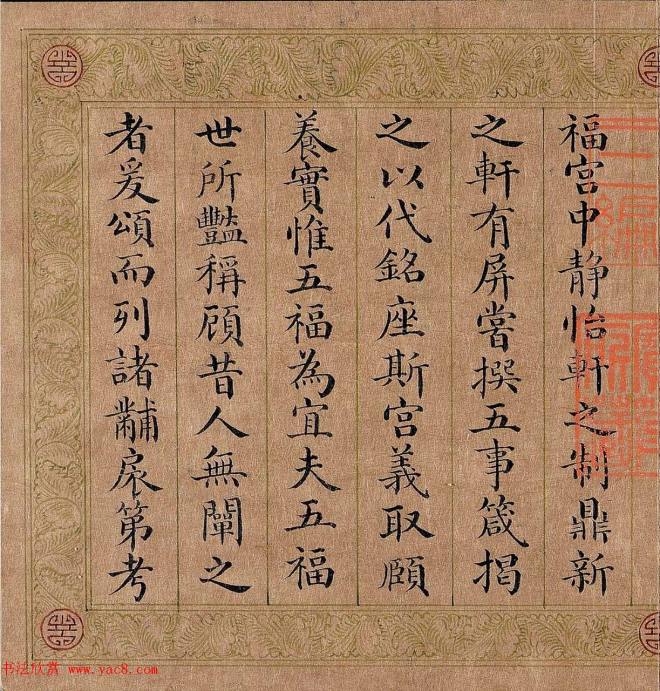 福宫中静怡軒之制鼎新
之軒有屏嘗撰五事箴揭
之以代銘座斯宫義取頤
養實惟五福為宜夫五福
世所豔稱顧昔人無闡之
者爰頌而列諸黼扆第考
书法欣赏 www.yac8.com